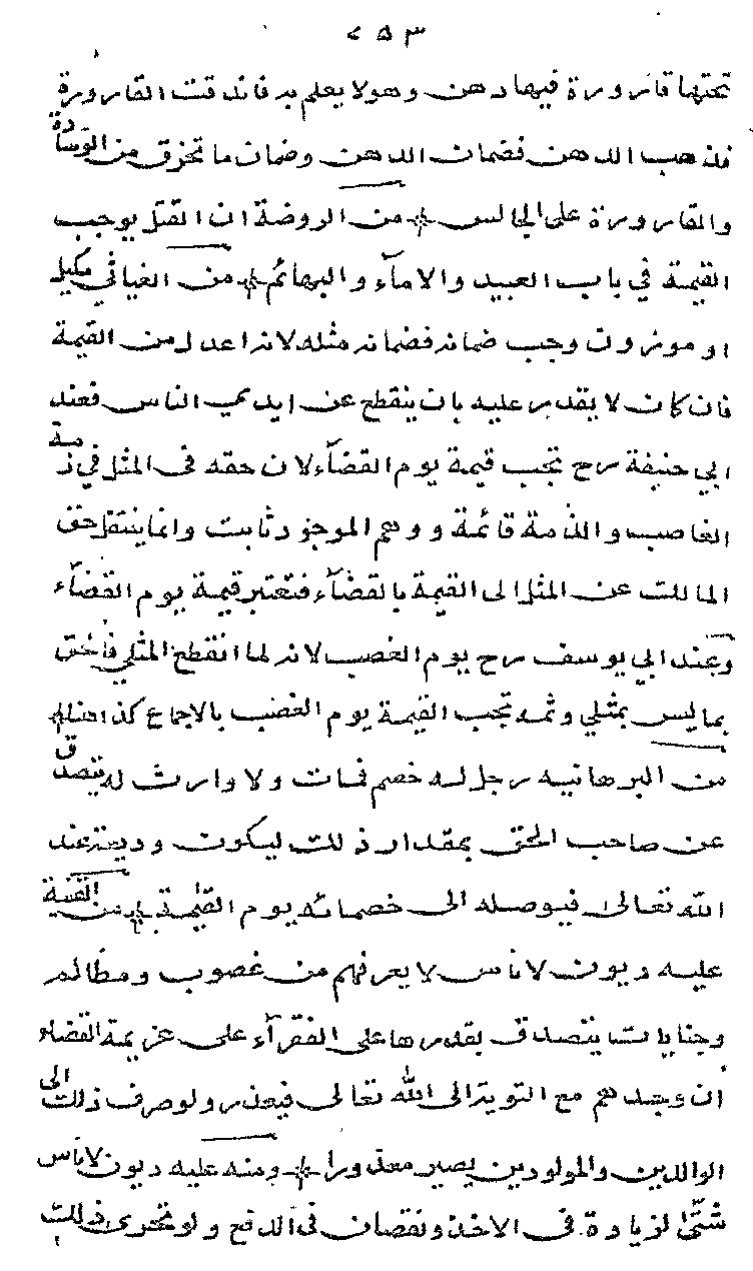 ٢٥٣
تحتها قارورة فيها دهن وهو لا يعلم به فاندقت القارورة
فذهب الدهن فضمان الدهن وضمان ما تخرق من الوسادة
والقارورة على الجالس من الروضة ان القتل يوجب
القيمة في باب العبيد والامآء والبهائم من الغياثي مكيل
او موزون وجب ضمانه فضمانه مثله لانه اعدل من القيمة
فان كان لا يقدر عليه بان ينقطع عن ايدي الناس فعند
ابي حنيفة رح تجب قيمة يوم القضآء لان حقه في المثل في ذمة
الغاصب والذمة قائمة ووهم الموجود ثابت وانما ينتقل حق
المالك عن المثل الى القيمة بالقضآء فتعتبر قيمة يوم القضآء
وعند ابي يوسف رح يوم الغصب لانه لما انقطع المثلي فالحق
بما ليس بمثلي وثمه تجب القيمة يوم الغصب بالاجماع كذا هذا
من البرهانيه رجل له خصم فمات ولا وارث له يتصدق
عن صاحب الحق بمقدار ذلك ليكون وديعة عند
الله تعالى فيوصله الى خصمائه يوم القيمة من القنية
عليه ديون لاناس لا يعرفهم من غصوب ومظالم
وجنايات يتصدق بقدرها على الفقرآء على عزيمة القضاء
ان وجدهم مع التوبة الى الله تعالى فيعذر ولو صرف ذلك الى
الوالدين والمولودين يصير معذورا ومنه عليه ديون لاناس
شتى لزيادة في الاخذ ونقصان في الدفع ولو تحرى ذلك